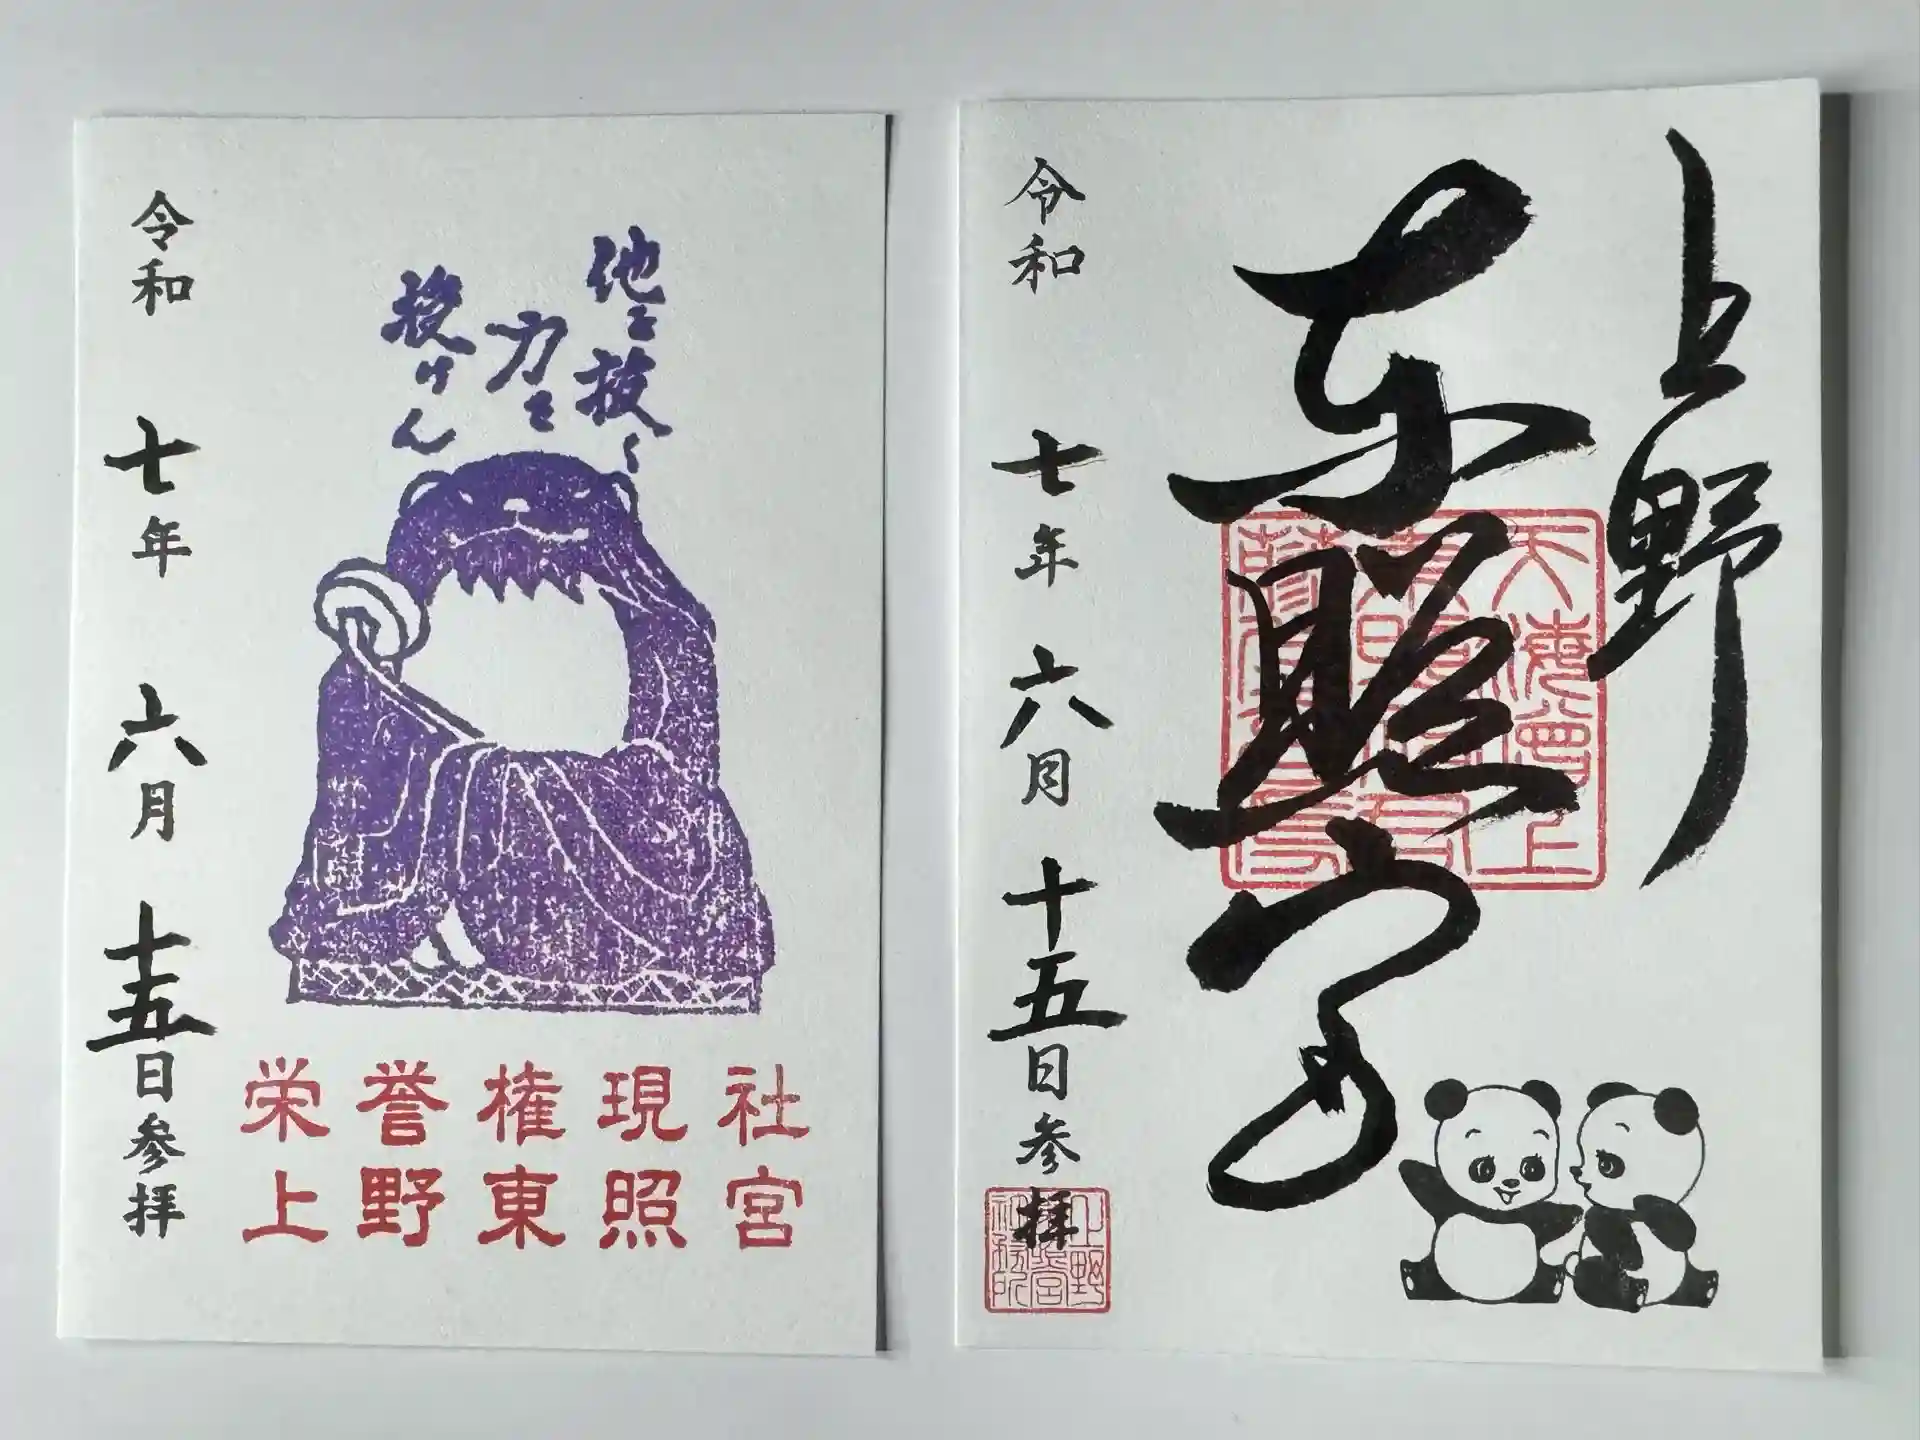 令和 七年 六月 十五日 参拝
他を抜く
力を
授けん
栄誉権現社
上野東照宮
上野
東照宮
令和 七年 六月 十五日 参拝